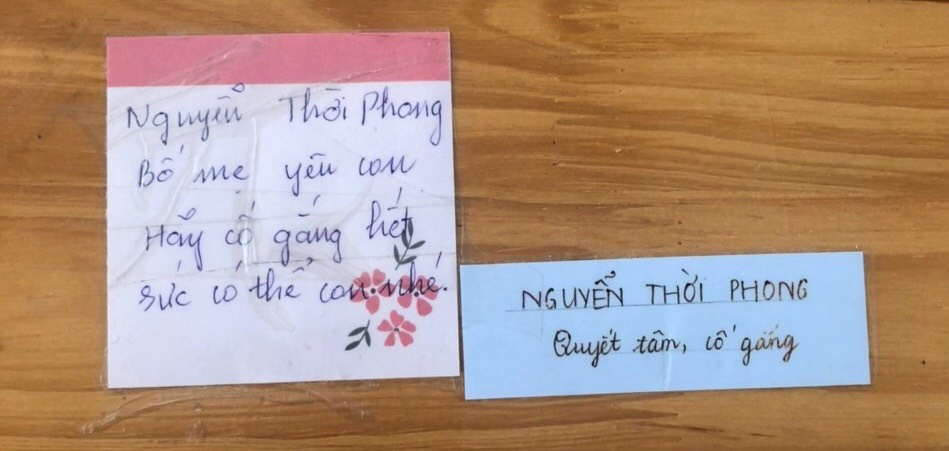 Nguyễn Thời Phong
Bố mẹ yêu con
Hãy cố gắng hết
sức có thể con nhé.
NGUYỄN THỜI PHONG
Quyết tâm, cố gắng